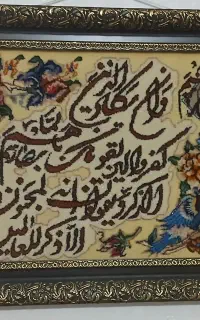 وان یکاد الذین
کفروا لیزلقونک بابصارهم لما
الذکر و یقولون انه لمجنون
الا ذکر للعالمین